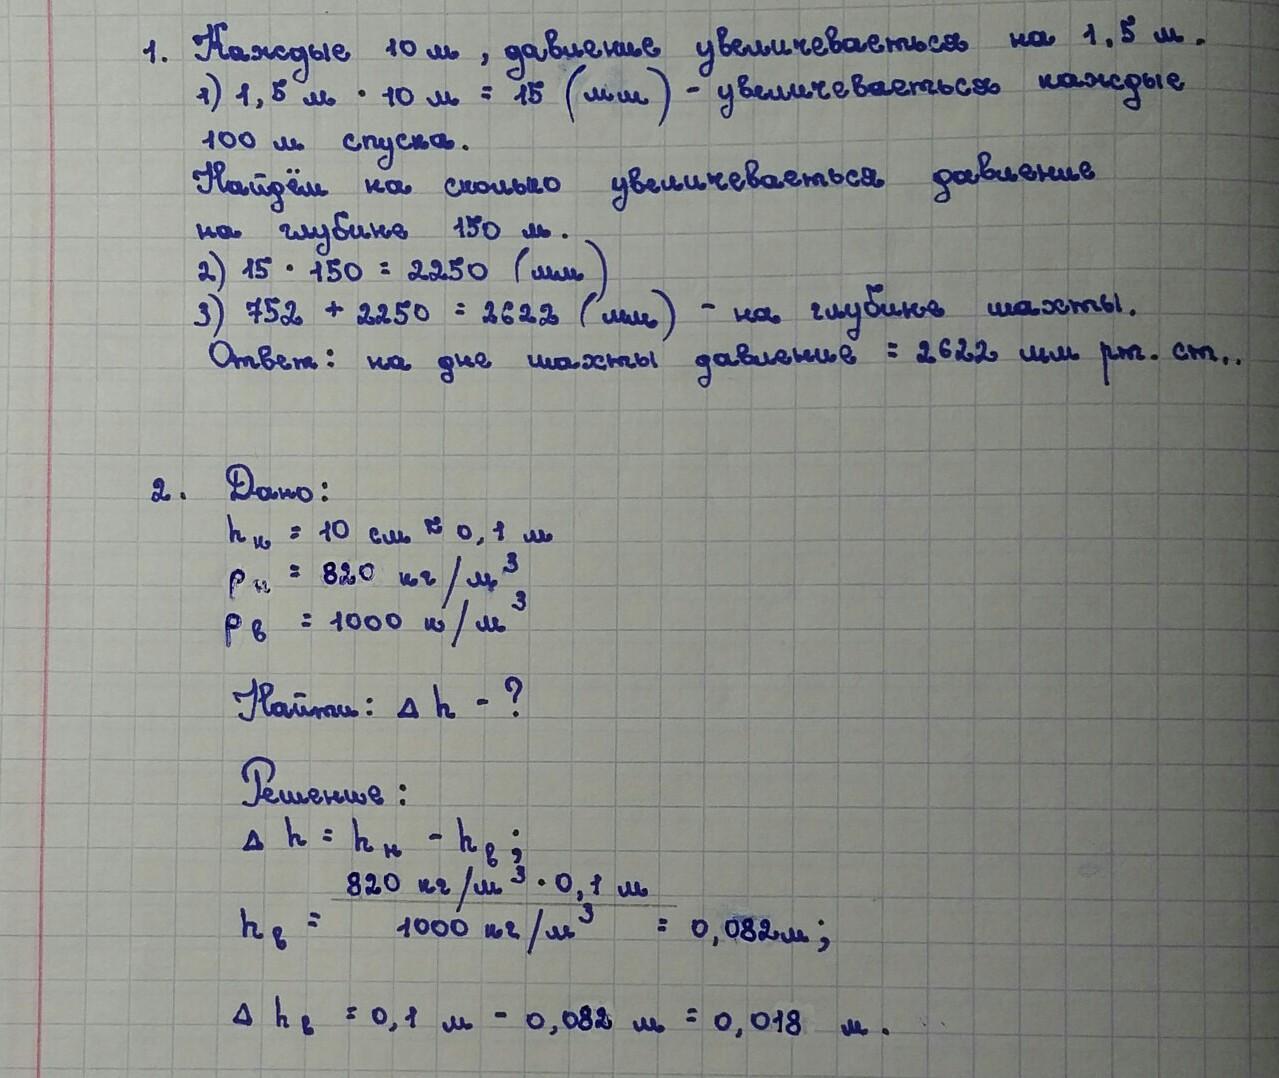 1. Каждые 10 м, давление увеличеваеться на 1,5 м.
1) 1,5 м · 10 м = 15 (мм) - увеличеваеться каждые
100 м спуска.
Найдём на сколько увеличеваеться давление
на глубине 150 м.
2) 15 · 150 = 2250 (мм)
3) 752 + 2250 = 2622 (мм) - на глубине шахты.
Ответ: на дне шахты давление = 2622 мм рт. ст..
2. Дано:
hк = 10 см ≈ 0,1 м
ρк = 820 кг/м³
ρв = 1000 к/м³
Найти: Δ h - ?
Решение:
Δ h = hк - hв;
820 кг/м³ · 0,1 м
hв = 1000 кг/м³ = 0,082м;
Δ hв = 0,1 м - 0,082 м = 0,018 м.